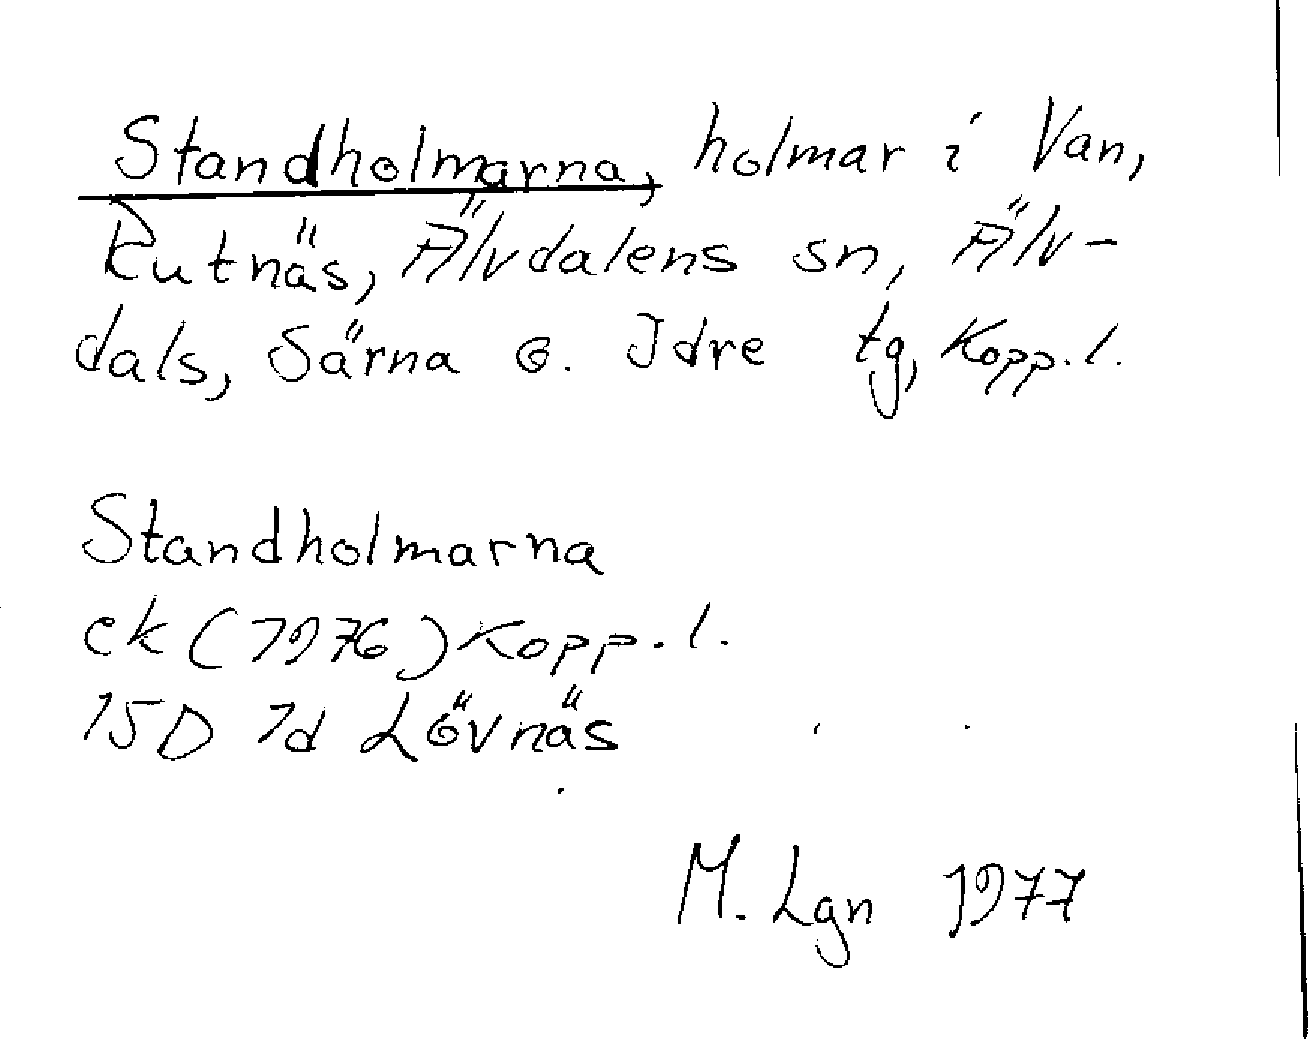 Standholmarna, holmar i Van,
Rutnäs, Älvdalens sn, Älv-
dals, Särna o. Idre tg, Kopp. l.
Standholmarna
ek (1976) Kopp. l.
15D 1d Lövnäs
M. Lgn 1977